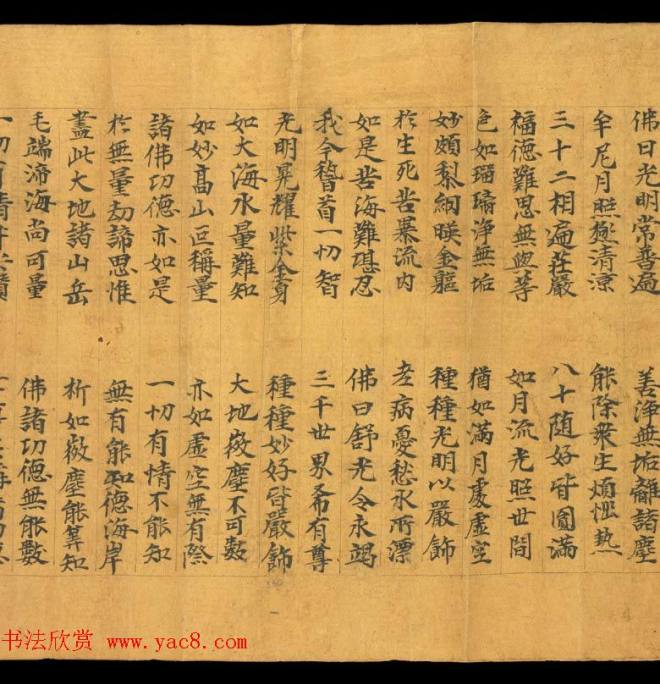 佛日光明常普遍 善淨無垢離諸塵
牟尼月照極清涼 能除衆生煩惱熱
三十二相遍莊嚴 八十随好皆圓滿
福德難思無與等 如月流光照世間
色如瑠璃淨無垢 猶如滿月處虛空
妙頗黎網暎金軀 種種光明以嚴飾
於生死苦暴流內 老病憂愁水所漂
如是苦海難堪忍 佛日舒光令永竭
我今稽首一切智 三千世界希有尊
光明晃耀紫金身 種種妙好皆嚴飾
如大海水量難知 大地微塵不可數
如妙高山叵稱量 亦如虛空無有際
諸佛功德亦如是 一切有情不能知
於無量劫諦思惟 無有能知德海岸
盡此大地諸山岳 析如微塵能筭知
毛端渧海尚可量 佛諸功德無能數
一切有情
书法欣赏 www.yac8.com